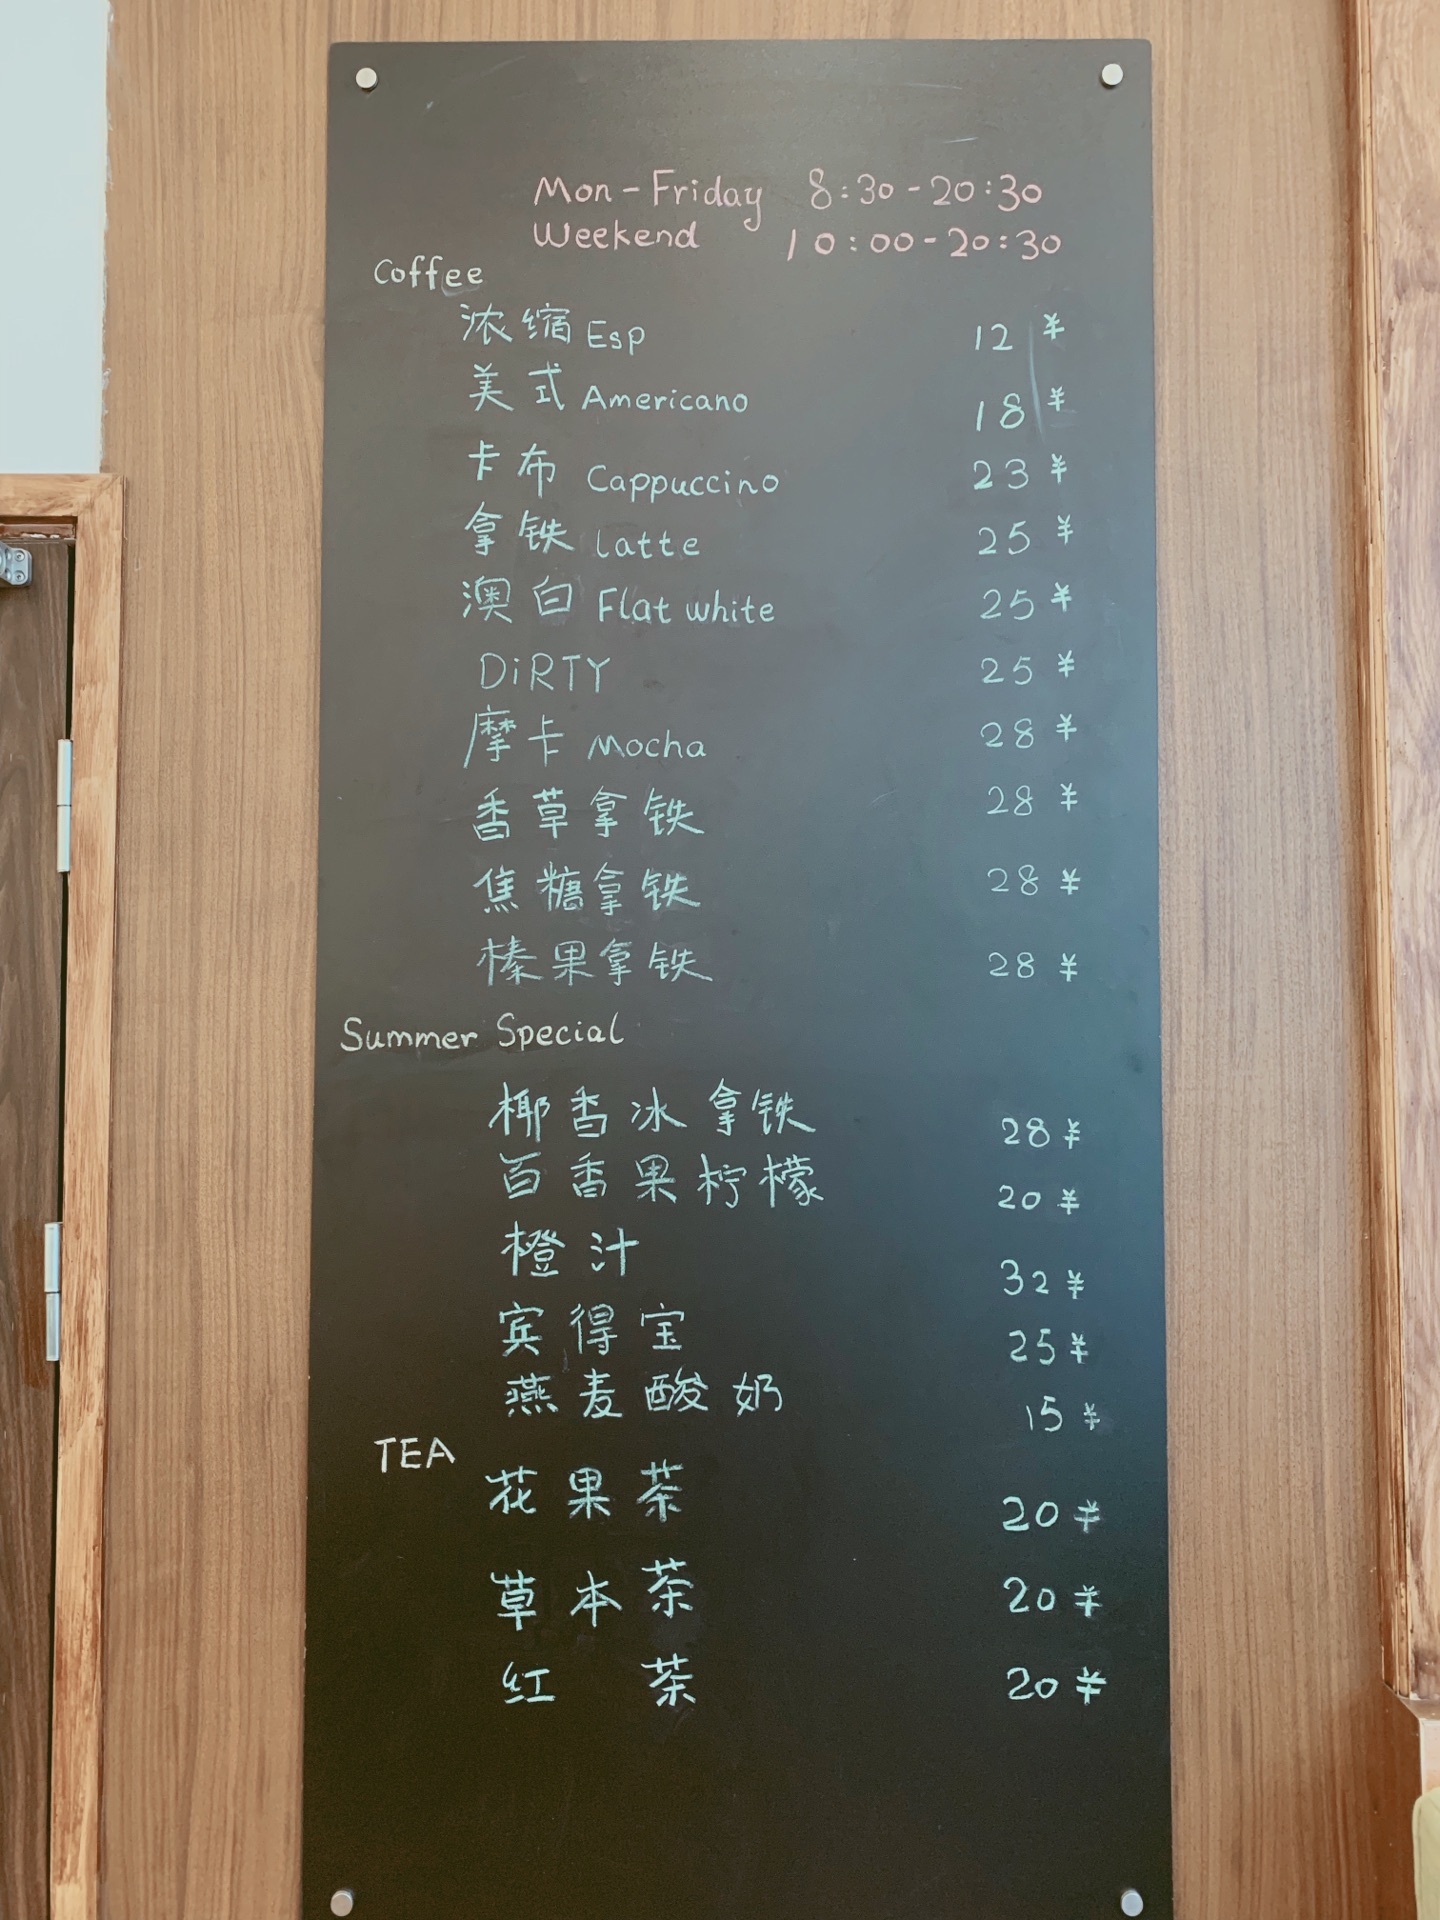 Mon-Friday 8:30-20:30
Weekend 10:00-20:30
Coffee
浓缩 Esp 12 ¥
美式 Americano 18 ¥
卡布 Cappuccino 23 ¥
拿铁 latte 25 ¥
澳白 Flat white 25 ¥
DiRTY 25 ¥
摩卡 Mocha 28 ¥
香草拿铁 28 ¥
焦糖拿铁 28 ¥
榛果拿铁 28 ¥
Summer Special
椰香冰拿铁 28 ¥
百香果柠檬 20 ¥
橙汁 32 ¥
宾得宝 25 ¥
燕麦酸奶 15 ¥
TEA
花果茶 20 ¥
草本茶 20 ¥
红茶 20 ¥